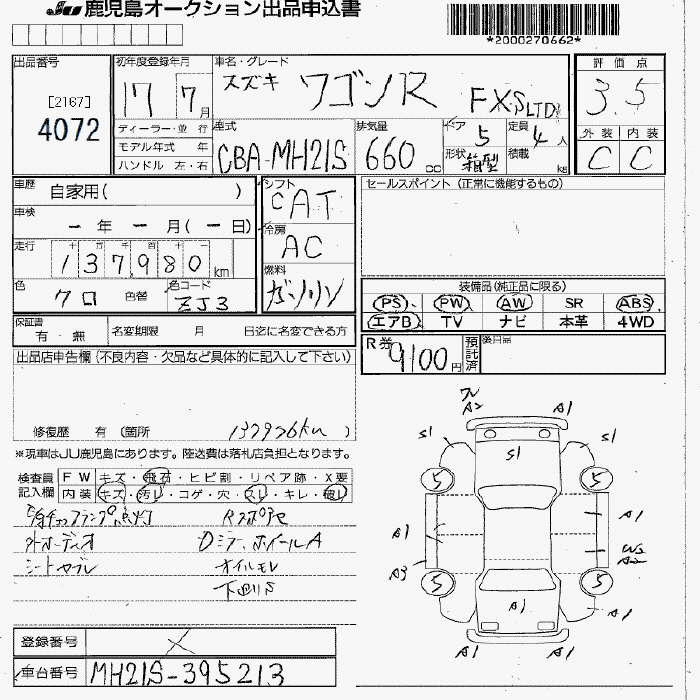 JU 鹿児島オークション出品申込書
*2000270662*
出品番号
[2167]
4072
初年度登録年月
17 7月
ディーラー・並 行
モデル年式 年
ハンドル 左・右
車名・グレード
スズキ ワゴンR FX・SLTD
型式
CBA-MH21S
排気量
660 cc
ドア
5
形状
箱型
定員
4人
積載
kg
評価点
3.5
外装 内装
C C
車歴
自家用( )
車検
ー年ー月(ー日)
走行
十 万 千 百 十
137980 km
色
クロ
色替
色コード
ZJ3
シフト
CAT
冷房
AC
燃料
ガソリン
セールスポイント (正常に機能するもの)
装備品(純正品に限る)
PS PW AW SR ABS
エアB TV ナビ 本革 4WD
保証書
有・無
名変期限 月 日迄に名変できる方
R券
9100円
預託済
後日品
出品店申告欄(不良内容・欠品など具体的に記入して下さい)
修復歴 有 (箇所 137926km )
※現車はJU鹿児島にあります。陸送費は落札店負担となります。
検査員記入欄
FW キズ・飛石・ヒビ割・リペア跡・X要
内装 キズ・汚レ・コゲ・穴・スレ・キレ・破レ
点灯
Rスポアセ
外オーディオ
Dミラー、ホイールA
シートヤブレ
オイルモレ
下廻りS
A2 A1
S1 S1 S1
5 5
A1 A1
A3 W2
A2
5 5
A1 A1
A1 A1
登録番号
車台番号
MH21S-395213